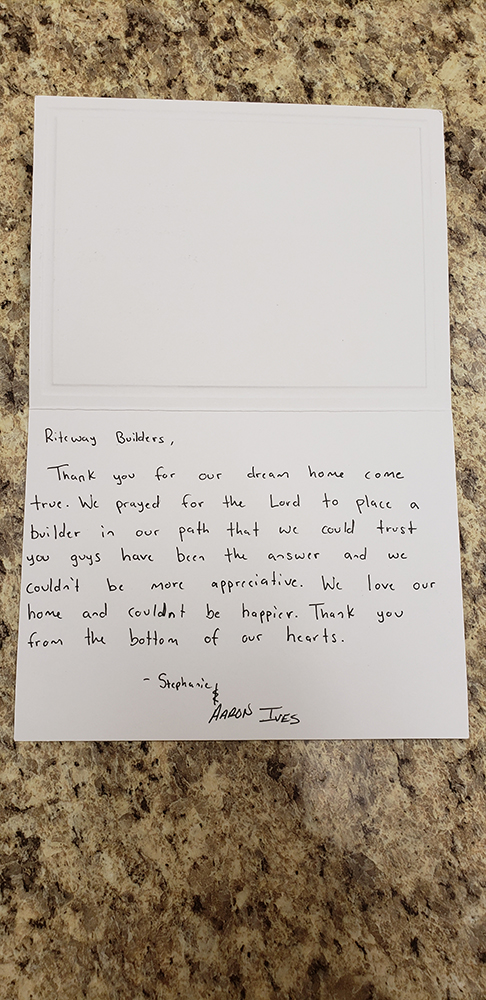 Riteway Builders,
Thank you for our dream home come
true. We prayed for the Lord to place a
builder in our path that we could trust
you guys have been the answer and we
couldn't be more appreciative. We love our
home and couldnt be happier. Thank you
from the bottom of our hearts.
- Stephanie
&
AARON IVES